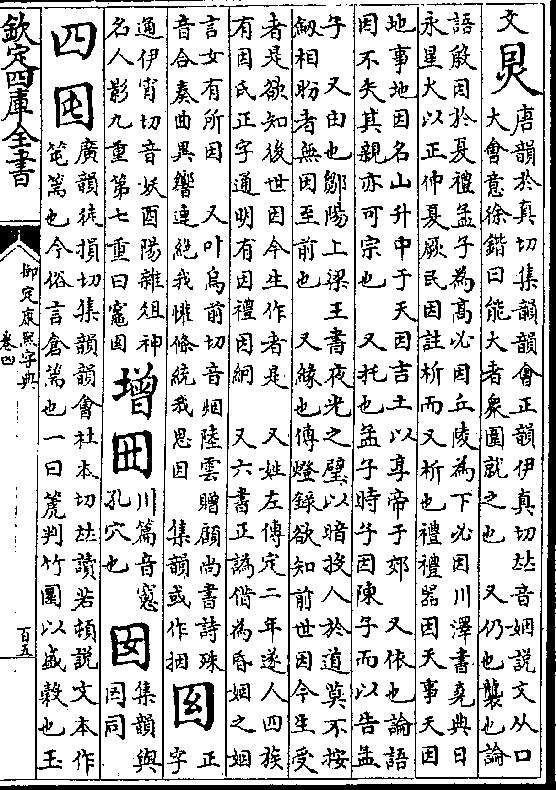 文
唐韻於真切集韻韻會正韻伊真切𠀤音姻説文从口
大會意徐鍇曰能大者衆圍就之也　又仍也襲也論
語殷因於夏禮孟子為髙必因丘陵為下必因川澤書堯典日
永星火以正仲夏厥民因註析而又析也禮禮器因天事天因
地事地因名山升中于天因吉土以享帝于郊　又依也論語
因不失其親亦可宗也　又托也孟子時子因陳子而以告孟
子　又由也鄒陽上梁王書夜光之璧以暗投人於道莫不按
劒相盼者無因至前也　又緣也傳燈錄欲知前世因今生受
者是欲知後世因今生作者是　又姓左傳定二年遂人四族
有因氏正字通明有因禮因綱　又六書正譌借為昏姻之姻
言女有所因　又叶烏前切音烟陸雲贈顧尚書詩殊
音合奏曲異響連絕我懽條統我思因　集韻或作捆
正
字
通伊宵切音妖酉陽雜俎神
名人影九重第七重曰竈
增
川篇音窓
孔穴也
集韻與
因同
四
囤
廣韻徒損切集韻韻會杜本切𠀤讀若頓説文本作
篅也今俗言倉篅也一曰判竹圜以盛榖也玉
欽定四庫全書
御定康熙字典
卷四
百五